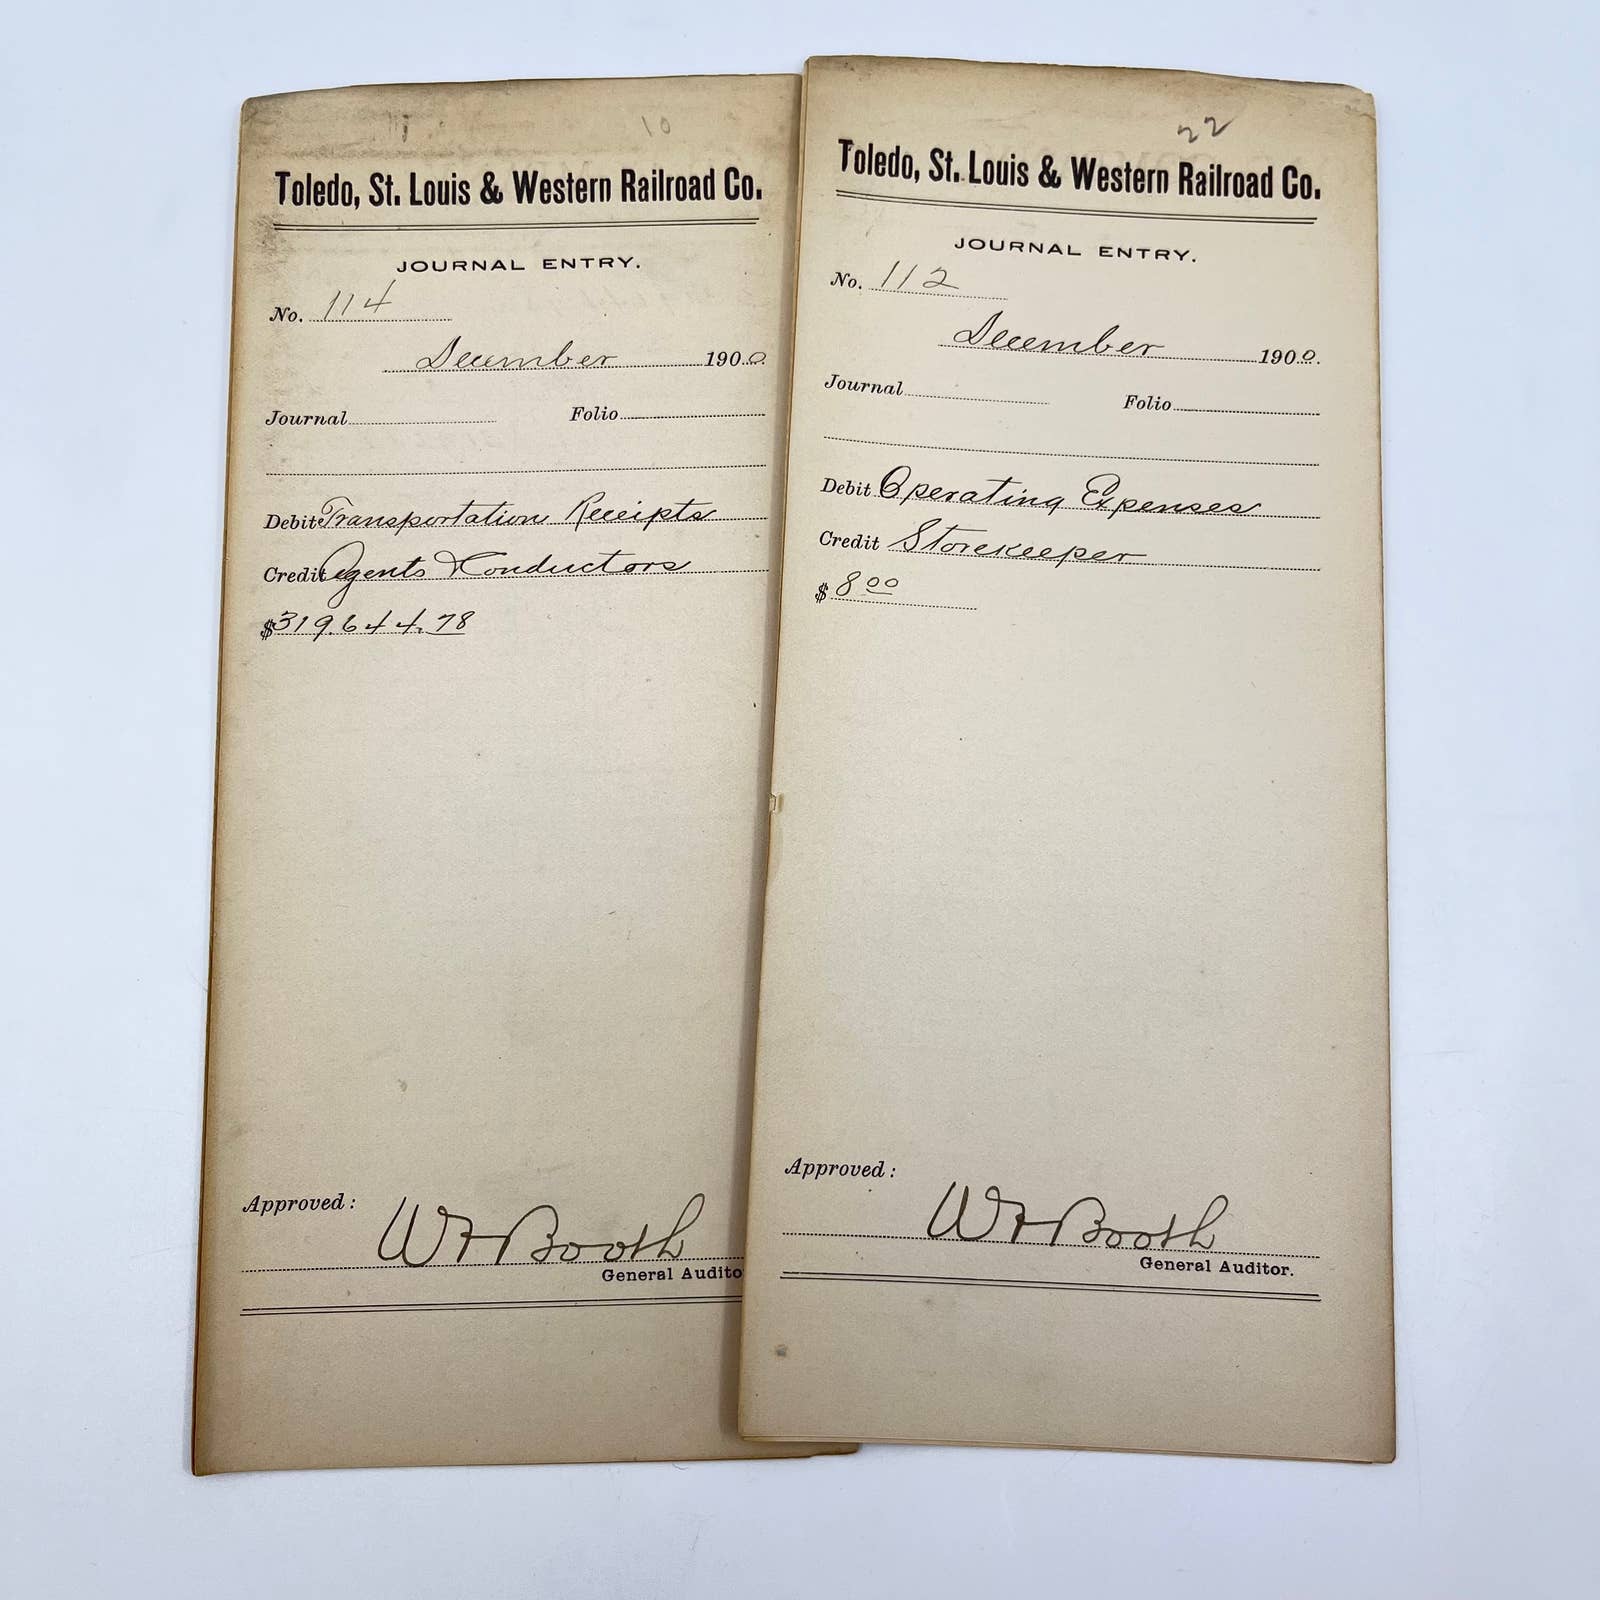 10
Toledo, St. Louis & Western Railroad Co.
JOURNAL ENTRY.
No. 114
December 1900
Journal Folio
Debit Transportation Receipts
Credit Agents & Conductors
$319.644.78
Approved:
W F Booth
General Audito
22
Toledo, St. Louis & Western Railroad Co.
JOURNAL ENTRY.
No. 112
December 1900.
Journal Folio
Debit Operating Expenses
Credit Storekeeper
$ 8 00
Approved:
W F Booth
General Auditor.